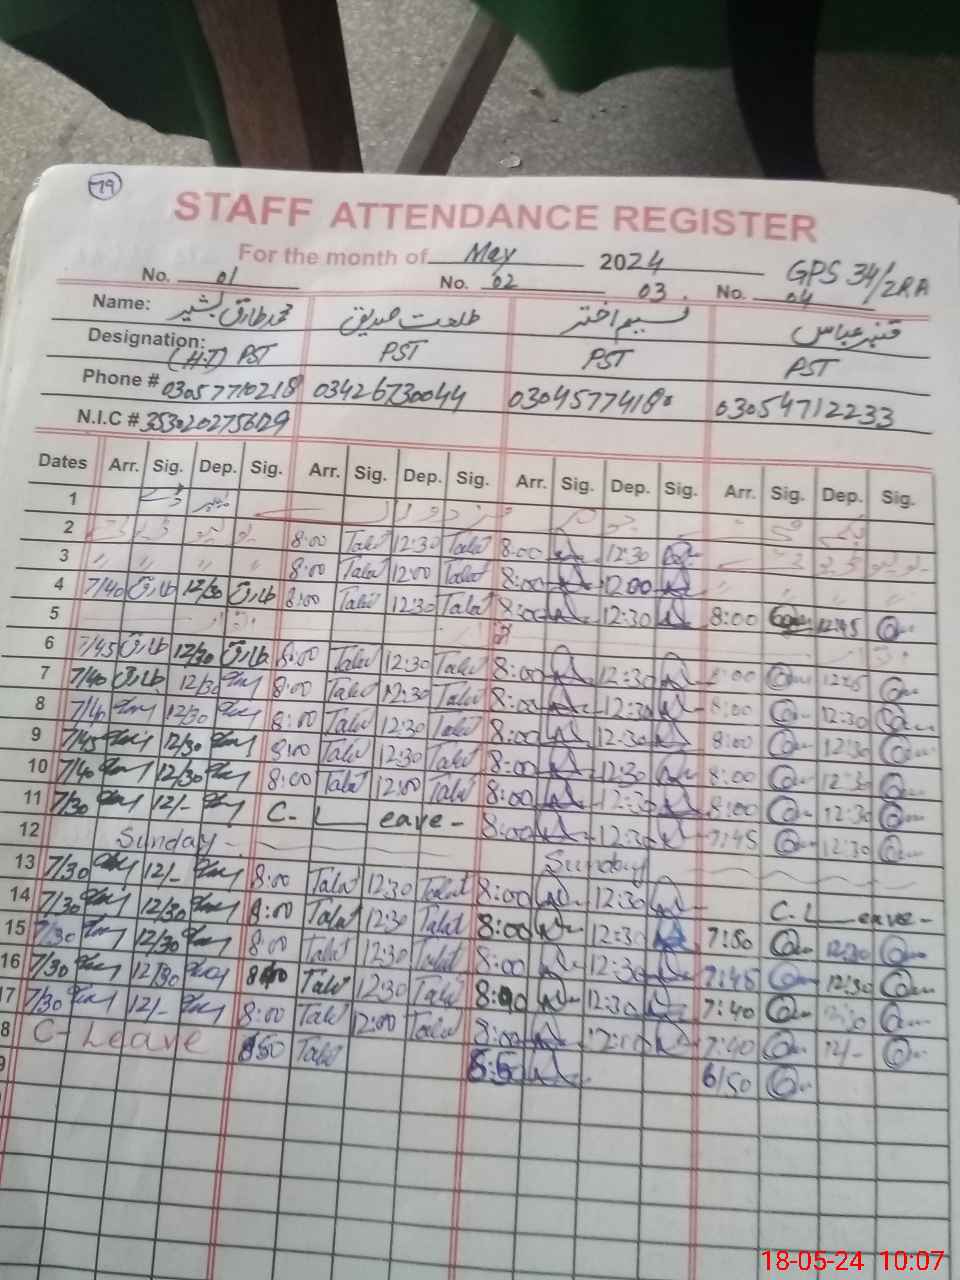 79
STAFF ATTENDANCE REGISTER
For the month of May 2024 GPS 34/2RA
No. 01 No. 02 03. No. 04
Name: محمد طارق بشیر طلعت صدیق نسیم اختر قنبر عباس
Designation: (H.T) PST PST PST PST
Phone # 03057710218 03426730044 03045774180 03054712233
N.I.C # 3530202756129
Dates Arr. Sig. Dep. Sig. Arr. Sig. Dep. Sig. Arr. Sig. Dep. Sig. Arr. Sig. Dep. Sig.
1
2 8:00 Talat 12:30 Talat 8:00 12:30
3 8:00 Talat 12:00 Talat 8:00 12:00
4 7/40 طارق 12/30 طارق 8:00 Talat 12:30 Talat 8:00 12:30 8:00 12:45
5
6 7/45 طارق 12/30 طارق 8:00 Talat 12:30 Talat 8:00 12:30 8:00
7 7/40 طارق 12/30 8:00 Talat 12:30 Talat 8:00 12:30 8:00 12:30
8 7/40 12/30 8:00 Talat 12:30 Talat 8:00 12:30 8:00 12:30
9 7/45 12/30 8:00 Talat 12:30 Talat 8:00 12:30 8:00 12:30
10 7/40 12/30 8:00 Talat 12:00 Talat 8:00 12:30 8:00 12:30
11 7/30 12/- C. Leave - 8:00 12:30 7:45 12:30
12 Sunday - Sunday
13 7/30 12/- 8:00 Talat 12:30 Talat 8:00 12:30 C. Leave -
14 7/30 12/30 8:00 Talat 12:30 Talat 8:00 12:30 7:50 12:30
15 7/30 12/30 8:00 Talat 12:30 Talat 8:00 12:30 7:45 12:30
16 7/30 12/30 Talat 12:30 Talat 12:30 7:40
17 7/30 12/- 8:00 Talat 12:00 Talat 8:00 7:40 12/-
8 C-Leave Talat 6/50
9
18-05-24 10:07